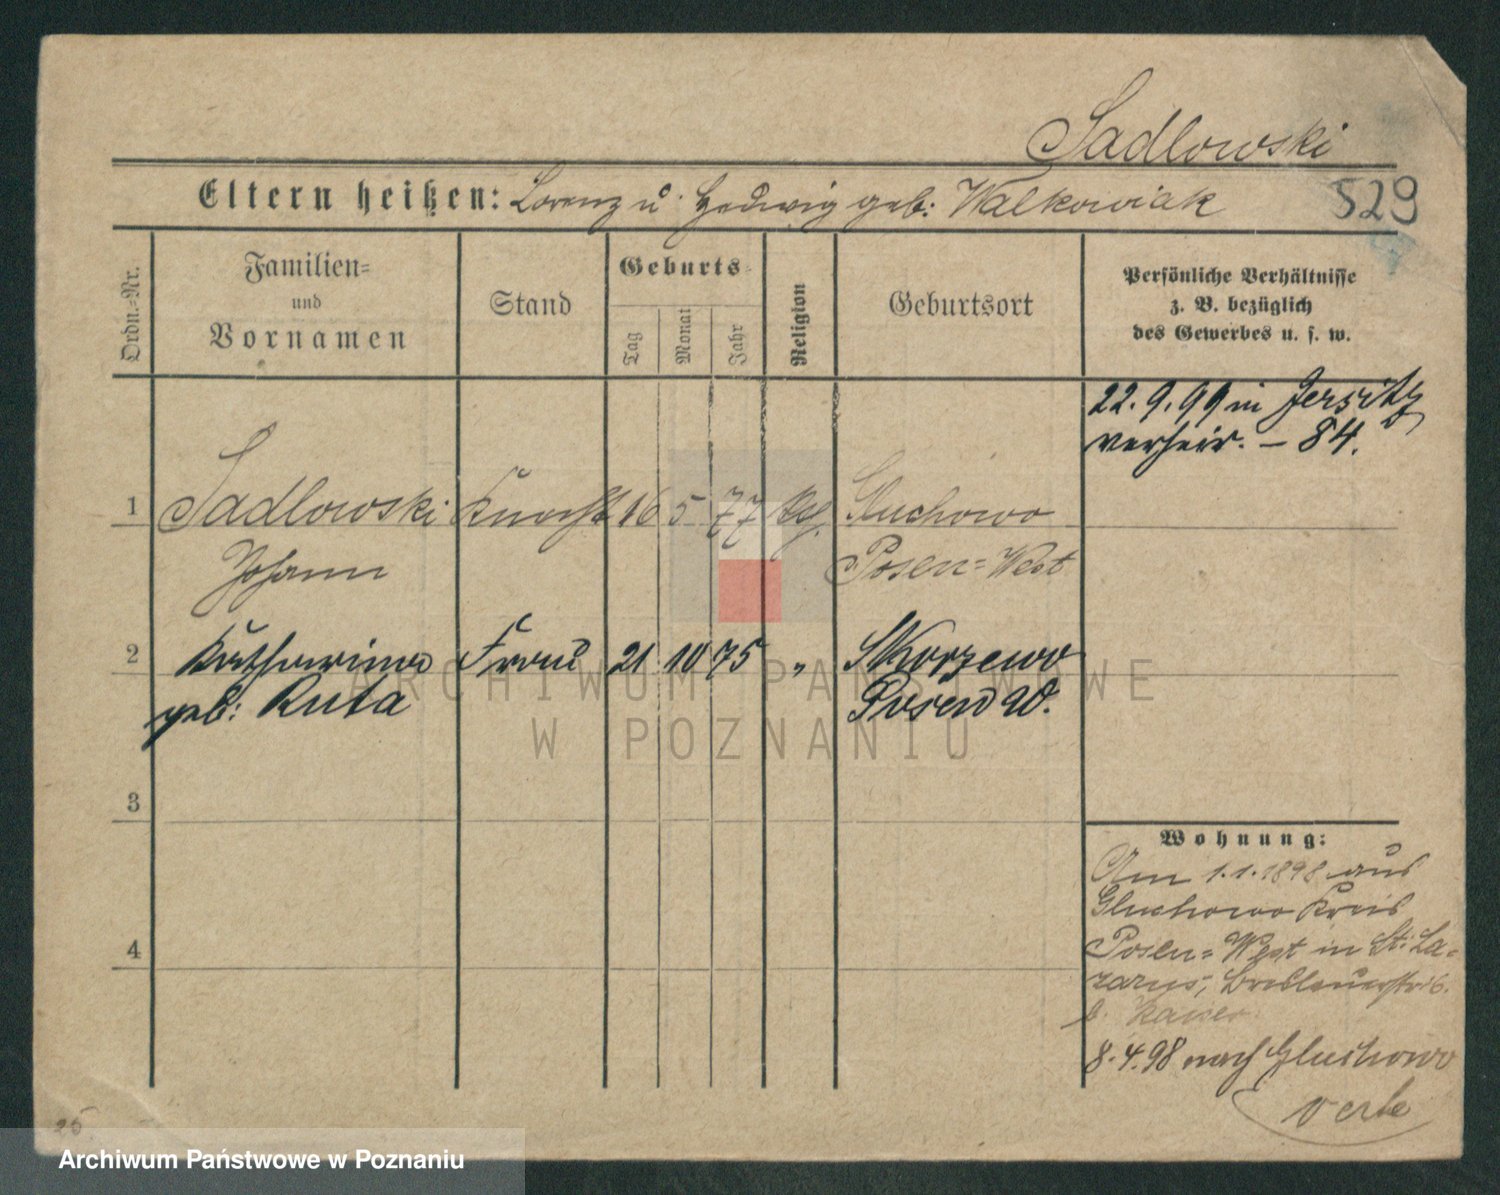 Sadlowski
Eltern heißen: Lorenz u. Hedwig geb: Walkowiak 529
Ordn.-Nr.
Familien-
und
Vornamen
Stand
Geburts-
Tag
Monat
Jahr
Religion
Geburtsort
Persönliche Verhältnisse
z. B. bezüglich
des Gewerbes u. s. w.
22.9.99 in Jersitz
verheir. – 84.
1 Sadlowski Knecht 16 5 77 Gluchowo
Johann Posen=West
2 Katharina Frau 21 10 75 " Skorzewo
geb: Ruta Posen W.
3
4
Wohnung:
Am 1.1.1898 aus
Gluchowo Kreis
Posen=West in St: La=
zarus, Breslauerstr 6.
b. Kaiser
8.4.98 nach Gluchowo
25
ARCHIWUM PAŃSTWOWE
W POZNANIU
Archiwum Państwowe w Poznaniu